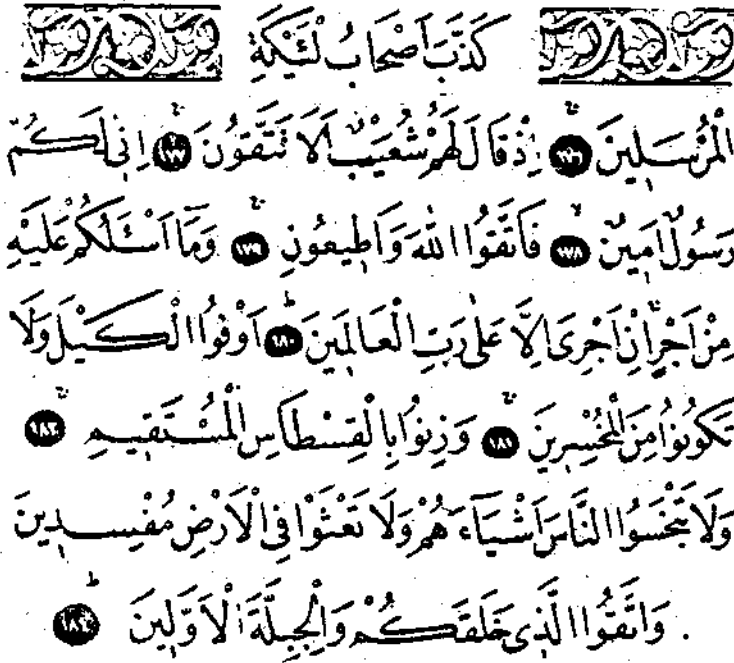 كَذَّبَ اَصْحَابُ لْئَيْكَةِ
الْمُرْسَلِينَ ﴿١٧٦﴾ اِذْ قَالَ لَهُمْ شُعَيْبٌ اَلَا تَتَّقُونَ ﴿١٧٧﴾ اِنِّى لَكُمْ
رَسُولٌ اَمِينٌ ﴿١٧٨﴾ فَاتَّقُوا اللّٰهَ وَاَطِيعُونِ ﴿١٧٩﴾ وَمَٓا اَسْـَٔلُكُمْ عَلَيْهِ
مِنْ اَجْرٍ اِنْ اَجْرِىَ اِلَّا عَلٰى رَبِّ الْعَالَمِينَ ﴿١٨٠﴾ اَوْفُوا الْكَيْلَ وَلَا
تَكُونُوا مِنَ الْمُخْسِرِينَ ﴿١٨١﴾ وَزِنُوا بِالْقِسْطَاسِ الْمُسْتَقِيمِ ﴿١٨٢﴾
وَلَا تَبْخَسُوا النَّاسَ اَشْيَٓاءَهُمْ وَلَا تَعْثَوْا فِى الْاَرْضِ مُفْسِدِينَ
وَاتَّقُوا الَّذِى خَلَقَكُمْ وَالْجِبِلَّةَ الْاَوَّلِينَ ﴿١٨٤﴾